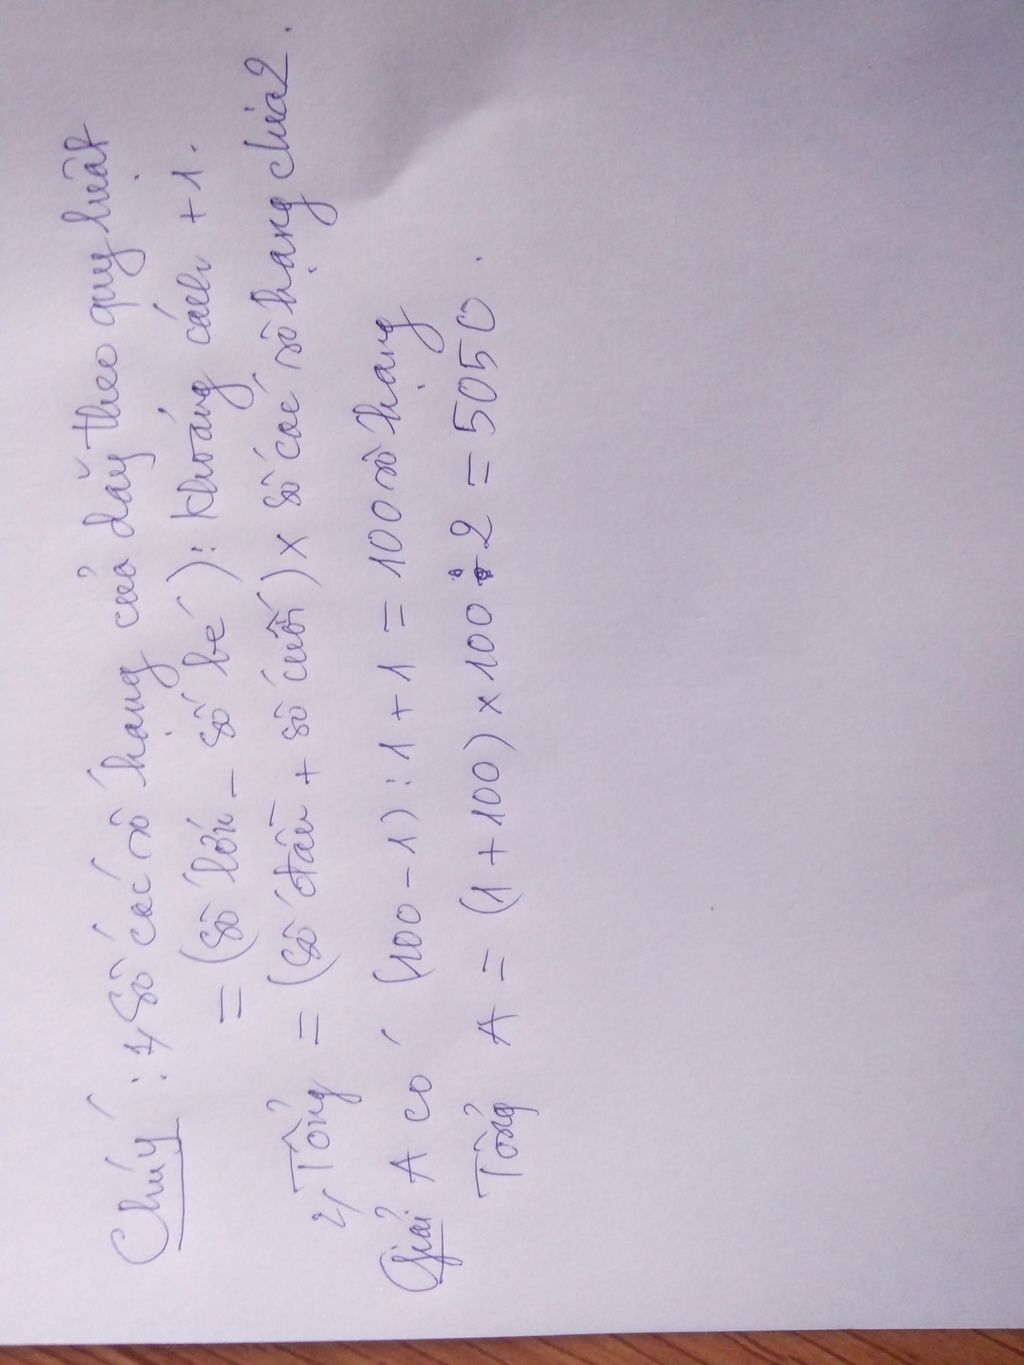 Chú ý : 1, Số các số hạng của dãy theo quy luật
= (số lớn - số bé) : khoảng cách + 1.
2, Tổng = (số đầu + số cuối) x số các số hạng chia 2.
Giải A có (100 - 1) : 1 + 1 = 100 số hạng
Tổng A = (1 + 100) x 100 : 2 = 5050.